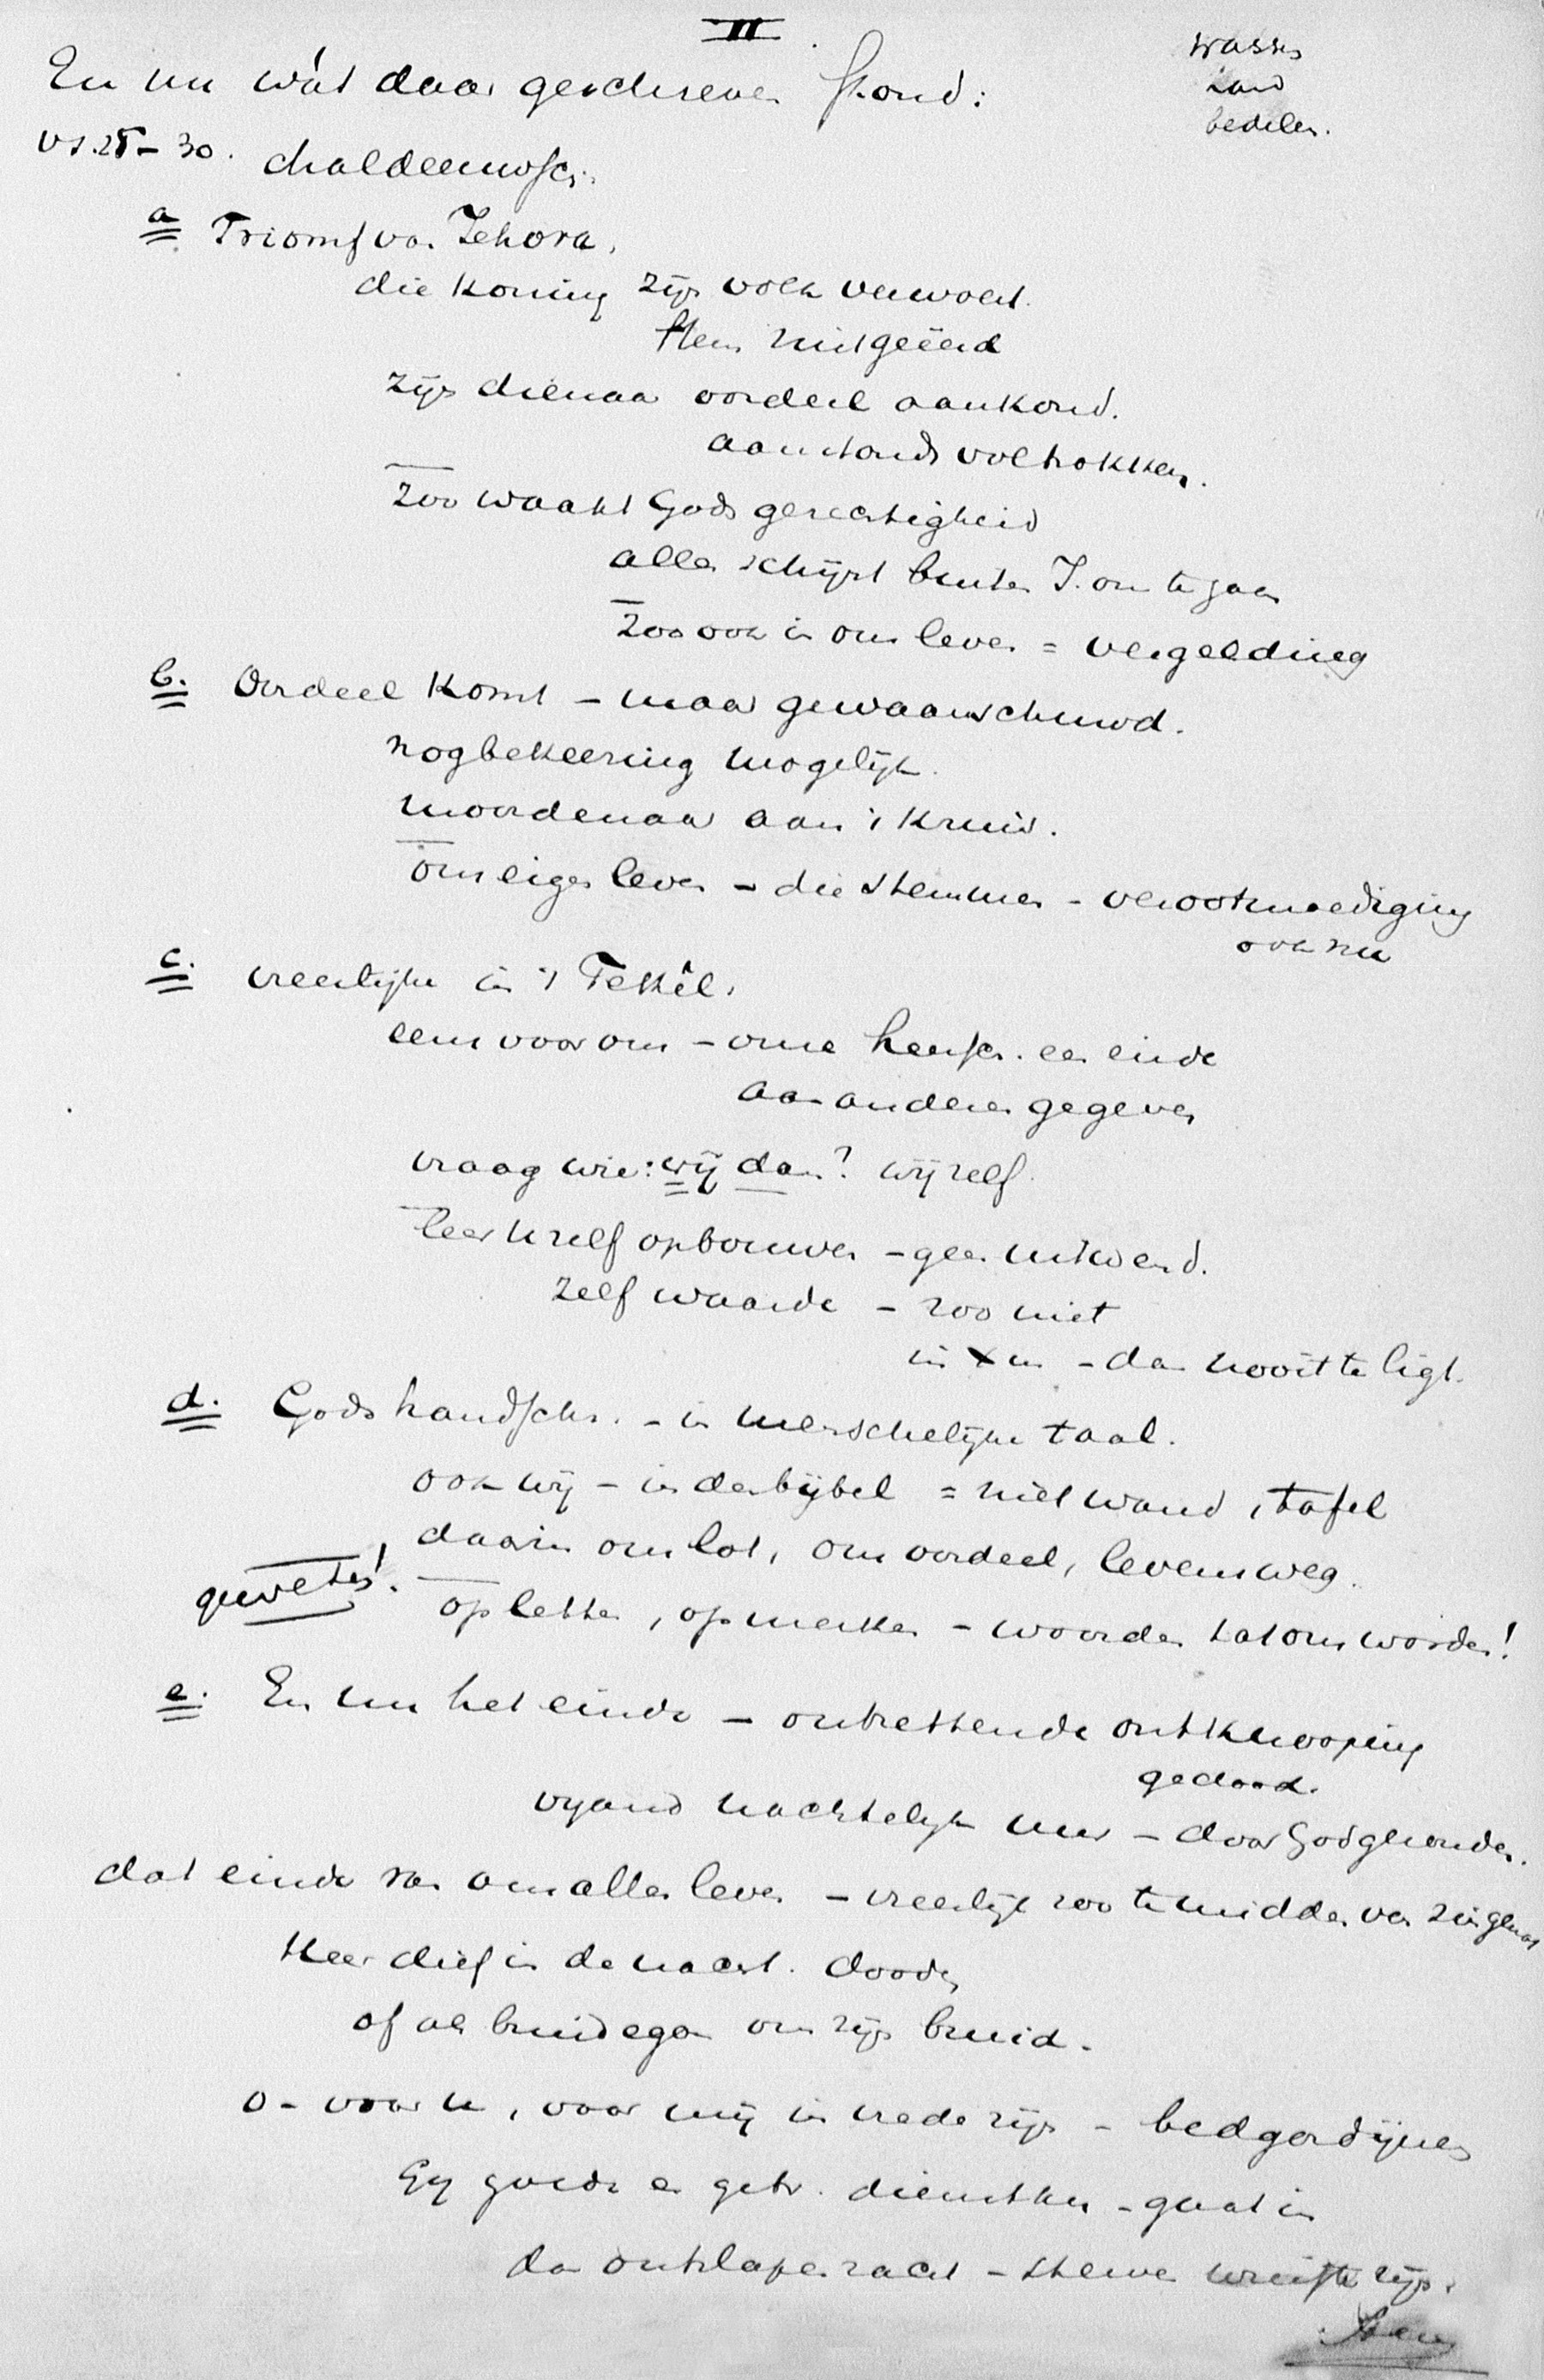 II
wassen
hand
bedelen.
En nu wàt daar geschreven stond:
vs. 25 - 30. chaldeeuwsch.
a Triomf van Jehova,
die koning zijn volk vervoert.
Hem niet geëerd
zijn dienaar oordeel aankond.
aanstonds voltrokken.
zoo waakt Gods gerechtigheid
alles schijnt buiten J. om te gaan
zoo ook in ons leven = vergelding
b. Oordeel komt - maar gewaarschuwd.
nog bekeering mogelijk.
moordenaar aan 't kruis.
ons eigen leven - die stemmen - verootmoediging
ook nu
c. vreeslijke in 't Tekêl.
eens voor ons - onze heersch. een einde
aan anderen gegeven
vraag wie: wij dan? wij zelf.
leer u zelf opbouwen - geen uitwend.
zelf waarde - zoo niet
in X us - dan nooit te ligt.
d. Gods handschr. - in menschelijke taal.
ook wij - in den bijbel = niet wand, tafel
daarin ons lot, ons oordeel, levensweg.
geweten!
opletten, opmerken - woorden tot ons worden!
e. En nu het einde - ontzettende ontknooping
gedood.
vijand nachtelijk uur - door God gezonden.
dat einde van ons aller leven - vreeslijk zoo te midden van zingenot
Heer dief in de nacht. dooden
of als bruidegom om zijn bruid.
o - voor u, voor mij in vrede zijn - bedgordijnen
Gij goede en getr. dienstkn. - gaat in
dan ontslapen zacht - sterven winste zijn.
Amen